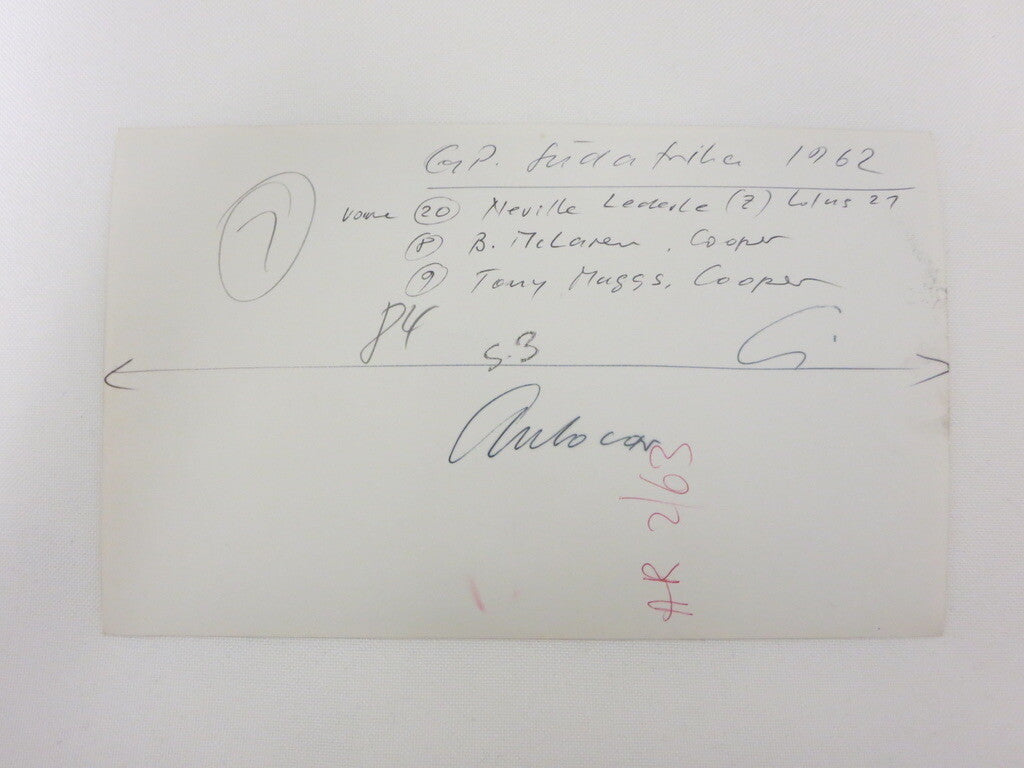 GP. Südafrika 1962
7
vorne 20 Neville Lederle (Z) Lotus 21
8 B. McLaren, Cooper
9 Tony Maggs, Cooper
84
S.3
Autocar
AR 2/63